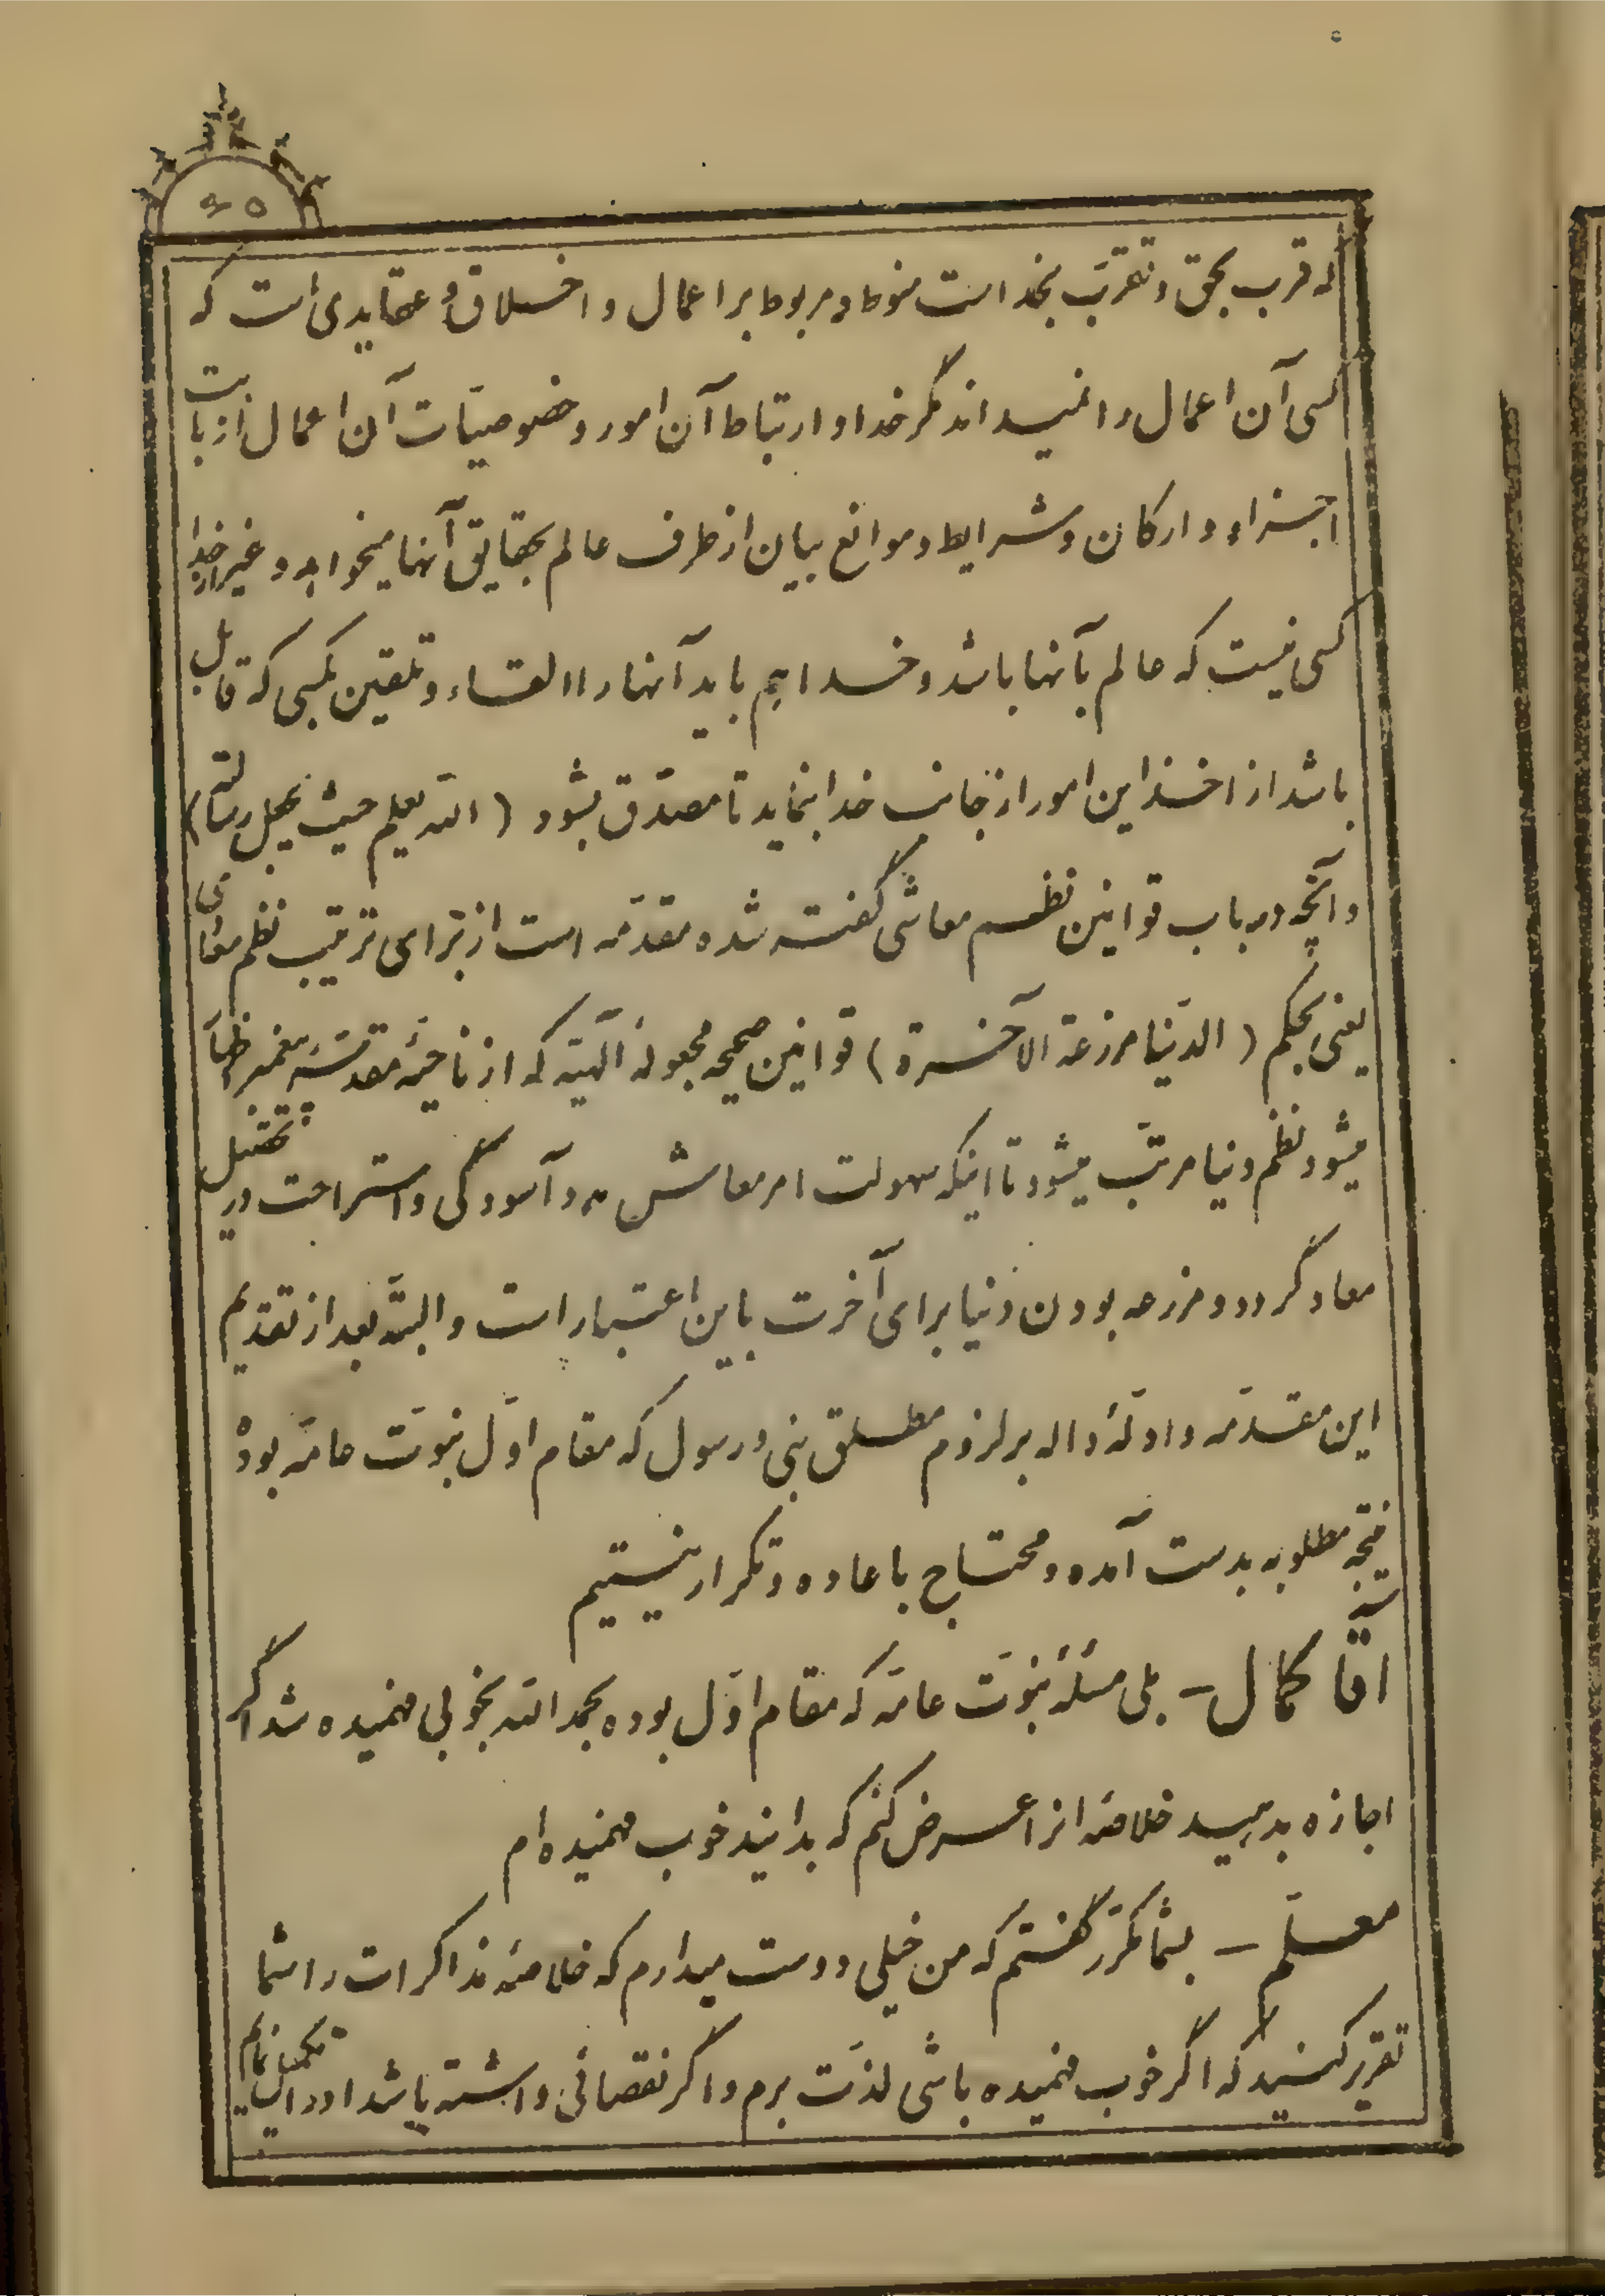 ۶۵
که قرب بحق و تقرّب بخداست منوط و مربوط بر اعمال و اخلاق و عقایدی است که
کسی آن اعمال را نمیداند مگر خدا و ارتباط آن امور و خصوصیّات آن اعمال از بابت
اجزاء و ارکان و شرایط و موانع بیان از طرف عالم بحقایق آنها میخواهد و غیر از خدا
کسی نیست که عالم بآنها باشد و خدا هم باید آنها را القاء و تلقین بکسی که قابل
باشد از اخذ این امور از جانب خدا بنماید تا مصدّق بشود ( الله یعلم حیث یجعل رسالته )
و آنچه در باب قوانین نظم معاشی گفته شده مقدّمه است از برای ترتیب نظم معادی
یعنی بحکم ( الدّنیا مزرعة الآخرة ) قوانین صحیحه مجعولهٔ الهیّه که از ناحیهٔ مقدّسهٔ پیغمبر ظاهر
میشود نظم دنیا مرتّب میشود تا اینکه سهولت امر معاش مدد آسودگی و استراحت در تحصیل
معاد گردد و مزرعه بودن دنیا برای آخرت باین اعتبار است و البتّه بعد از تقدیم
این مقدّمه و ادلّهٔ داله بر لزوم مطلق نبی و رسول که مقام اوّل نبوّت عامّه بوده
نتیجه مطلوبه بدست آمده و محتاج باعاده و تکرار نیستیم
آقا کمال – بلی مسئلهٔ نبوّت عامّه که مقام اوّل بوده بحمد الله بخوبی فهمیده شد اگر
اجازه بدهید خلاصهٔ انرا عرض کنم که بدانید خوب فهمیده ام
معلّم – بشما مکرّر گفتم که من خیلی دوست میدارم که خلاصهٔ مذاکرات را شما
تقریر کنید که اگر خوب فهمیده باشی لذّت برم و اگر نقصانی داشته باشد اورا تکمیل نمایم